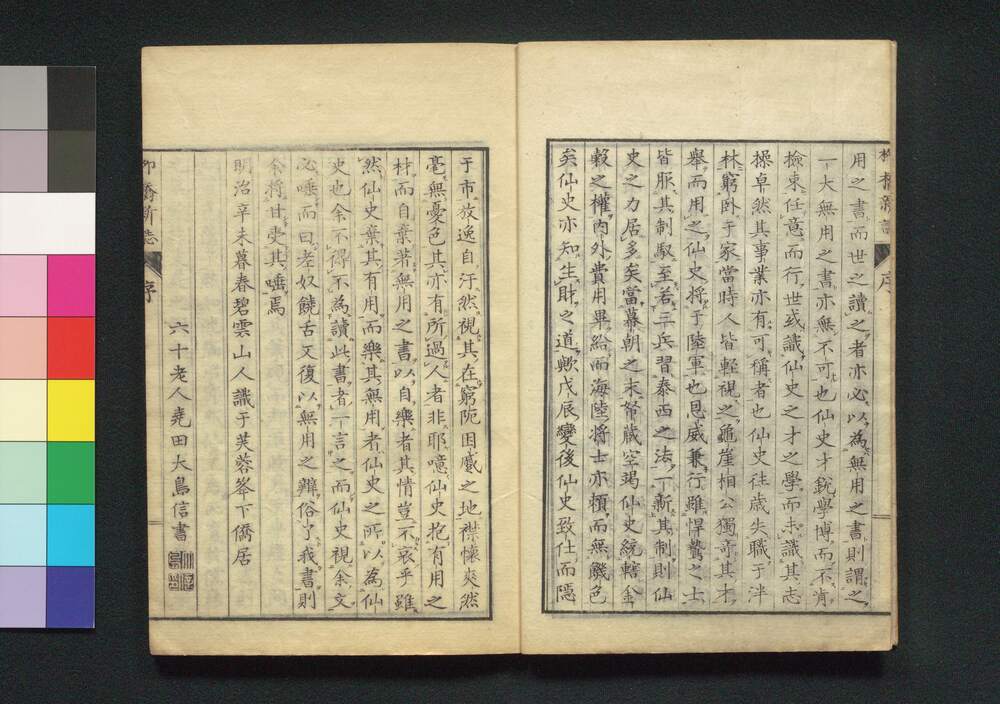 柳橋新誌
序
用之書而世之讀之者亦必以為無用之書則謂之
一大無用之書亦無不可也仙史才銳學博而不肯
檢束任意而行世或識仙史之才之學而未識其志
操卓然其事業亦有可稱者也仙史往歲失職于泮
林窮臥于家當時人皆輕視之龜崖相公獨奇其才
舉而用之仙史將于陸軍也恩威兼行雖悍鷙之士
皆服其制馭至若三兵習泰西之法一新其制則仙
史之力居多矣當幕朝之末帑藏空竭仙史統轄金
穀之權內外費用畢給而海陸將士亦賴而無饑色
矣仙史亦知生財之道歟戊辰變後仙史致仕而隱
于市放逸自汗然視其在窮阨困蹙之地襟懷爽然
毫無憂色其亦有所過人者非耶噫仙史抱有用之
材而自棄著無用之書以自樂者其情豈不哀乎雖
然仙史棄其有用而樂其無用者仙史之所以為仙
史也余不得不為讀此書者一言之而仙史視余文
必唾而曰老奴饒舌又復以無用之辯俗了我書則
余將甘受其唾焉
明治辛未暮春碧雲山人識于芙蓉峯下僑居
六十老人堯田大島信書
柳橋新誌
序